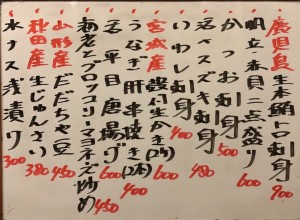 鹿児島 生本鮪トロ刺身 900
帆立·春貝二点盛り 600
かつお刺身 500
活スズキ刺身 480
いわし刺身 400
宮城産 殻付生かき(2ケ) 600
うなぎ肝串焼き(2本) 400
活平目唐揚げ 600
海老とブロッコリーマヨネーズ炒め 450
山形産 だだちゃ豆 450
秋田産 生じゅんさい 380
水ナス浅漬け 300